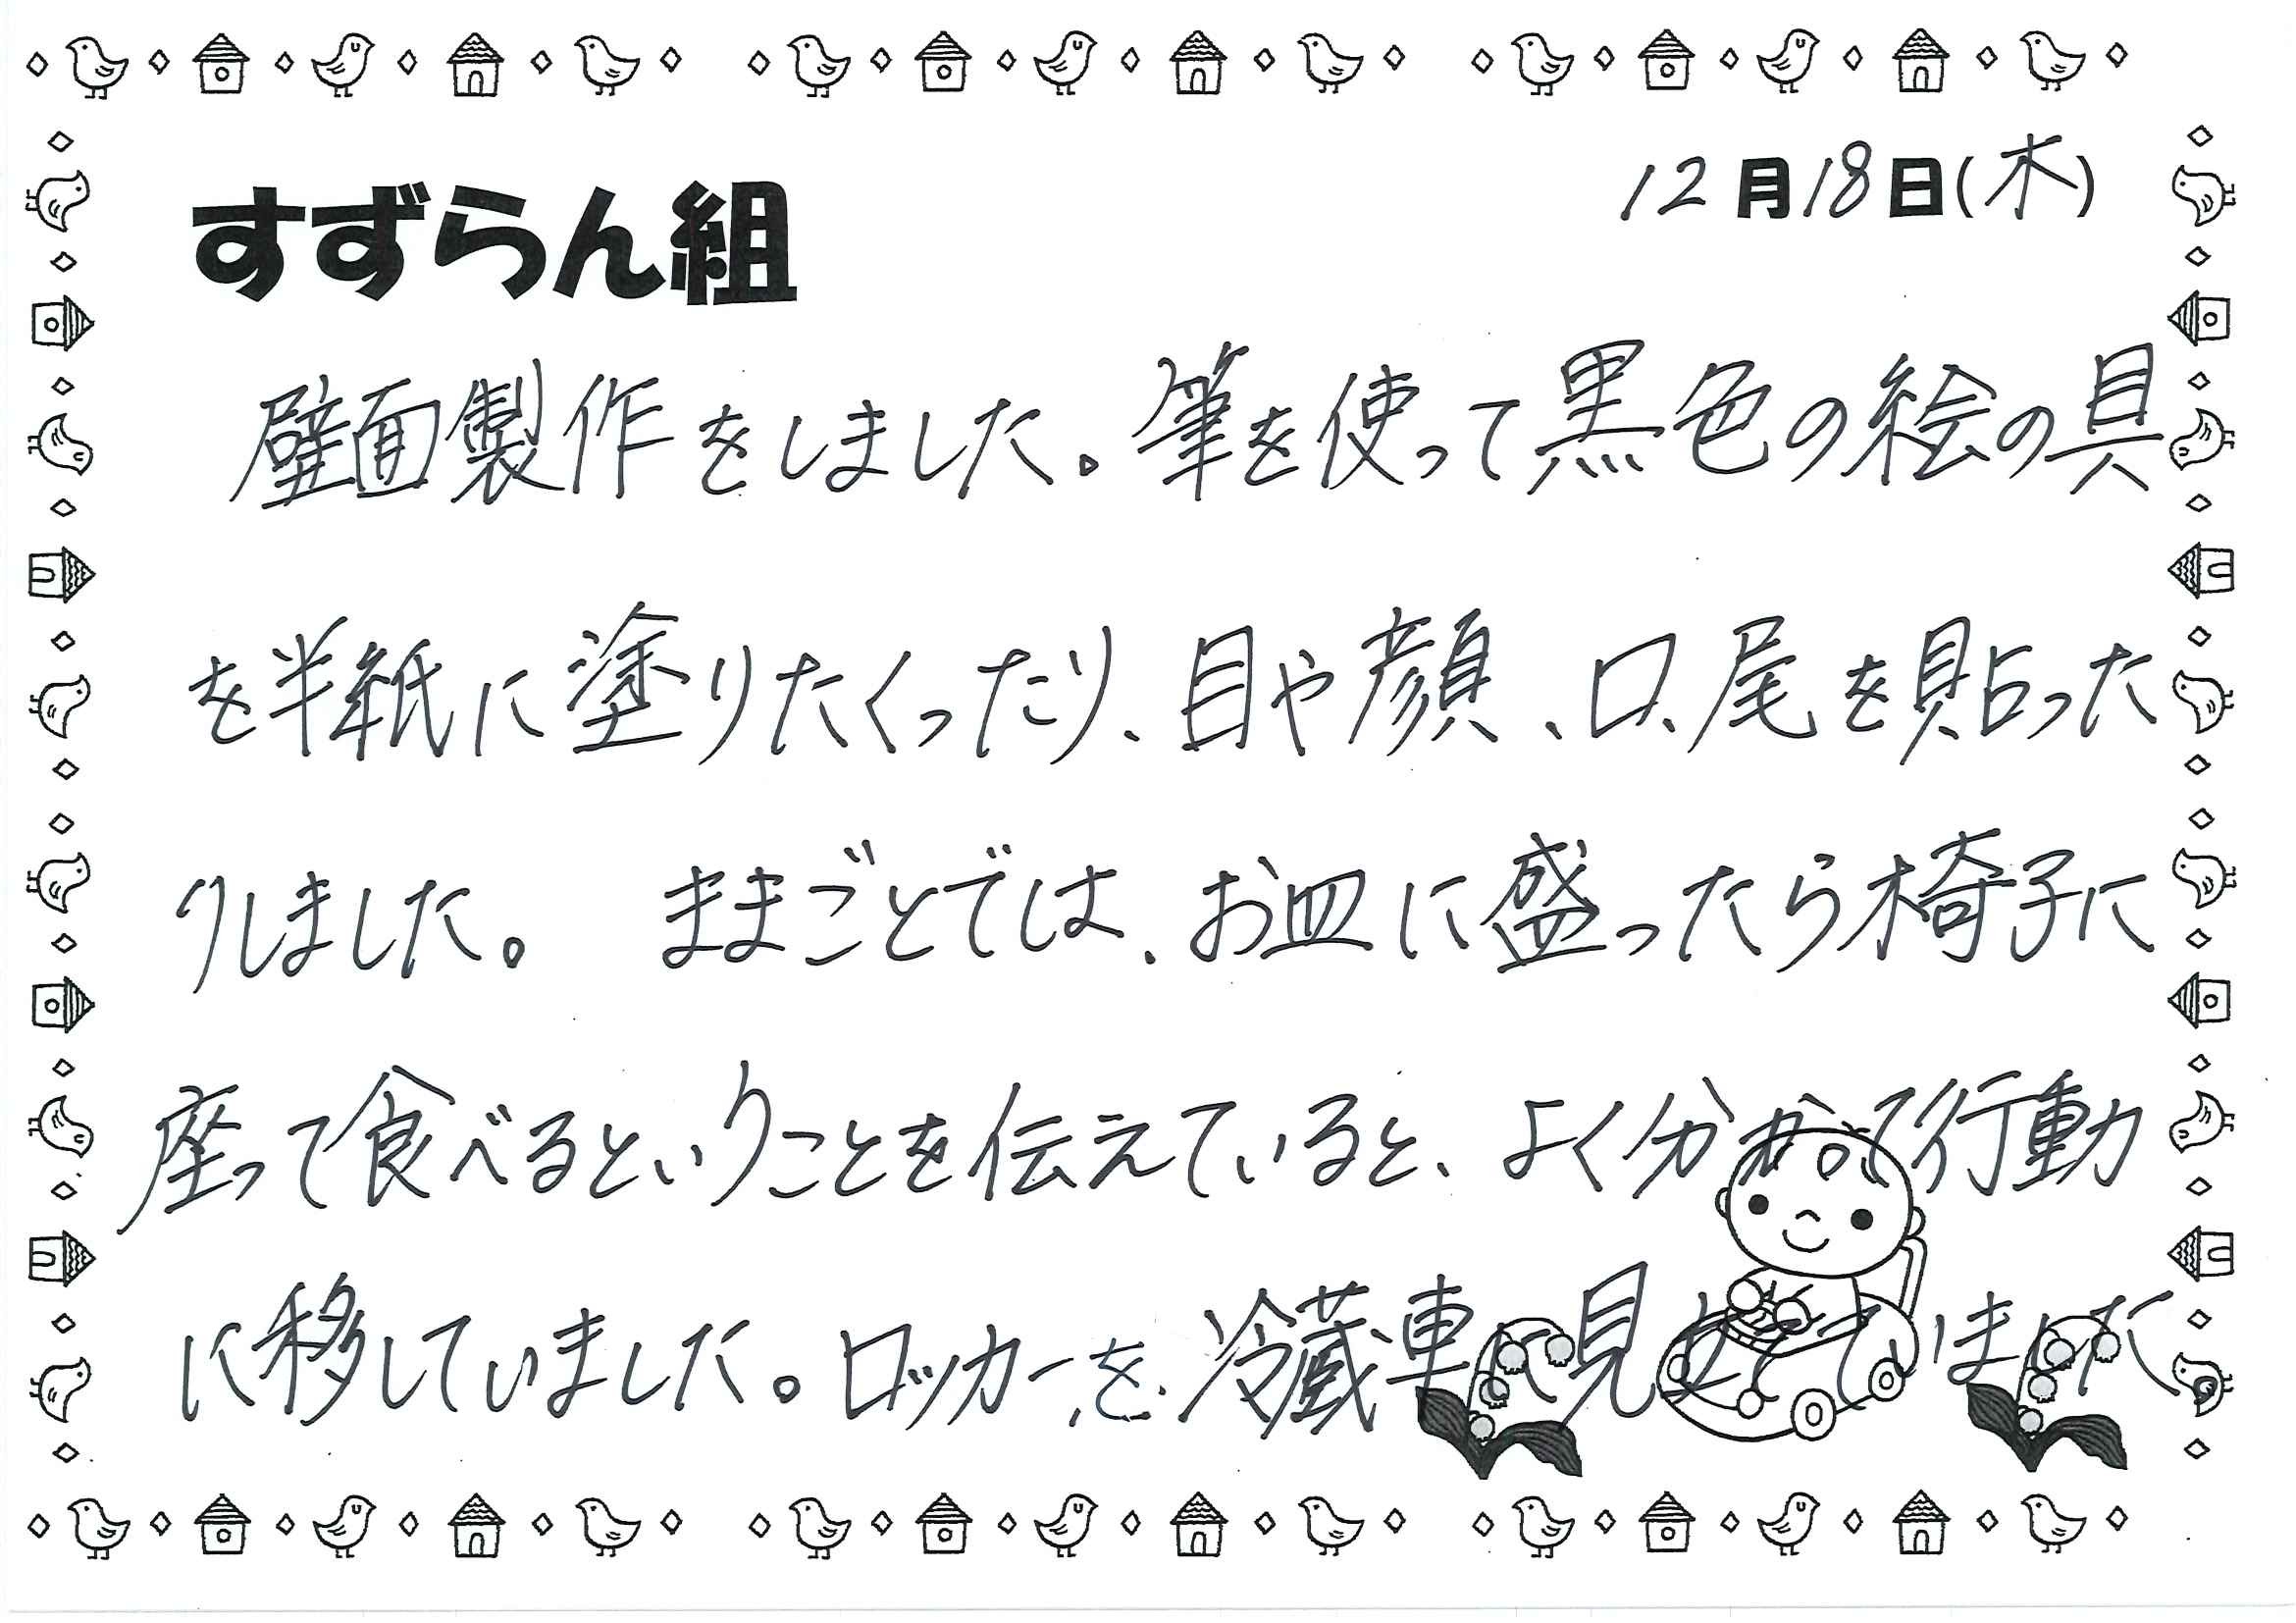 すずらん組
12月18日(木)
壁面製作をしました。筆を使って黒色の絵の具
を半紙に塗りたくったり、目や顔、口、尾を貼った
りしました。 ままごとでは、お皿に盛ったら椅子に
座って食べるということを伝えていると、よく分かって行動
に移していました。ロッカーを冷蔵庫に見立てていました。